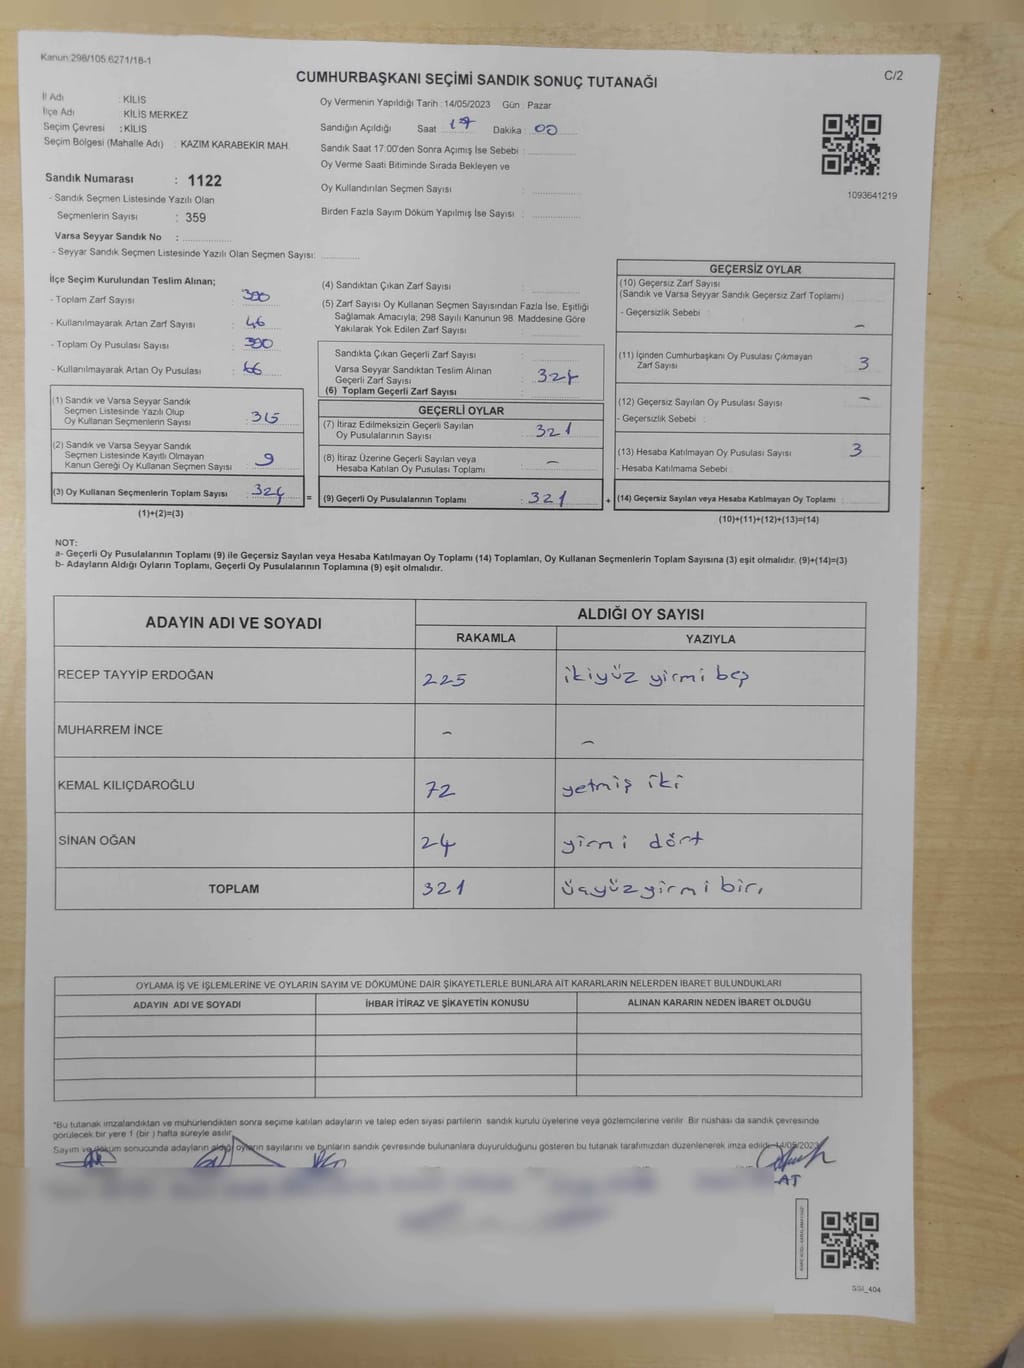 Kanun:298/105.6271/18-1
C/2
CUMHURBAŞKANI SEÇİMİ SANDIK SONUÇ TUTANAĞI
İl Adı : KİLİS
İlçe Adı KİLİS MERKEZ
Seçim Çevresi : KİLİS
Seçim Bölgesi (Mahalle Adı) : KAZIM KARABEKİR MAH.
Sandık Numarası : 1122
- Sandık Seçmen Listesinde Yazılı Olan
Seçmenlerin Sayısı : 359
Varsa Seyyar Sandık No :
- Seyyar Sandık Seçmen Listesinde Yazılı Olan Seçmen Sayısı:
Oy Vermenin Yapıldığı Tarih : 14/05/2023 Gün : Pazar
Sandığın Açıldığı Saat 17 Dakika : 00
Sandık Saat 17:00'den Sonra Açımış İse Sebebi :
Oy Verme Saati Bitiminde Sırada Bekleyen ve
Oy Kullandırılan Seçmen Sayısı :
Birden Fazla Sayım Döküm Yapılmış İse Sayısı :
1093641219
İlçe Seçim Kurulundan Teslim Alınan;
- Toplam Zarf Sayısı :
- Kullanılmayarak Artan Zarf Sayısı :
- Toplam Oy Pusulası Sayısı :
- Kullanılmayarak Artan Oy Pusulası : 66
(1) Sandık ve Varsa Seyyar Sandık
Seçmen Listesinde Yazılı Olup
Oy Kullanan Seçmenlerin Sayısı : 315
(2) Sandık ve Varsa Seyyar Sandık
Seçmen Listesinde Kayıtlı Olmayan
Kanun Gereği Oy Kullanan Seçmen Sayısı : 9
(3) Oy Kullanan Seçmenlerin Toplam Sayısı : 324 =
(1)+(2)=(3)
(4) Sandıktan Çıkan Zarf Sayısı :
(5) Zarf Sayısı Oy Kullanan Seçmen Sayısından Fazla İse, Eşitliği
Sağlamak Amacıyla; 298 Sayılı Kanunun 98. Maddesine Göre
Yakılarak Yok Edilen Zarf Sayısı :
Sandıkta Çıkan Geçerli Zarf Sayısı :
Varsa Seyyar Sandıktan Teslim Alınan
Geçerli Zarf Sayısı : 324
(6) Toplam Geçerli Zarf Sayısı :
GEÇERLİ OYLAR
(7) İtiraz Edilmeksizin Geçerli Sayılan
Oy Pusulalarının Sayısı : 321
(8) İtiraz Üzerine Geçerli Sayılan veya
Hesaba Katılan Oy Pusulası Toplamı : –
(9) Geçerli Oy Pusulalarının Toplamı : 321 +
GEÇERSİZ OYLAR
(10) Geçersiz Zarf Sayısı
(Sandık ve Varsa Seyyar Sandık Geçersiz Zarf Toplamı)
- Geçersizlik Sebebi : –
(11) İçinden Cumhurbaşkanı Oy Pusulası Çıkmayan
Zarf Sayısı 3
(12) Geçersiz Sayılan Oy Pusulası Sayısı –
- Geçersizlik Sebebi :
(13) Hesaba Katılmayan Oy Pusulası Sayısı 3
- Hesaba Katılmama Sebebi
(14) Geçersiz Sayılan veya Hesaba Katılmayan Oy Toplamı :
(10)+(11)+(12)+(13)=(14)
NOT:
a- Geçerli Oy Pusulalarının Toplamı (9) ile Geçersiz Sayılan veya Hesaba Katılmayan Oy Toplamı (14) Toplamları, Oy Kullanan Seçmenlerin Toplam Sayısına (3) eşit olmalıdır. (9)+(14)=(3)
b- Adayların Aldığı Oyların Toplamı, Geçerli Oy Pusulalarının Toplamına (9) eşit olmalıdır.
ADAYIN ADI VE SOYADI ALDIĞI OY SAYISI
RAKAMLA YAZIYLA
RECEP TAYYİP ERDOĞAN 225 ikiyüz yirmi beş
MUHARREM İNCE – –
KEMAL KILIÇDAROĞLU 72 yetmiş iki
SİNAN OĞAN 24 yirmi dört
TOPLAM 321 üçyüzyirmi bir.
OYLAMA İŞ VE İŞLEMLERİNE VE OYLARIN SAYIM VE DÖKÜMÜNE DAİR ŞİKAYETLERLE BUNLARA AİT KARARLARIN NELERDEN İBARET BULUNDUKLARI
ADAYIN ADI VE SOYADI İHBAR İTİRAZ VE ŞİKAYETİN KONUSU ALINAN KARARIN NEDEN İBARET OLDUĞU
*Bu tutanak imzalandıktan ve mühürlendikten sonra seçime katılan adayların ve talep eden siyasi partilerin sandık kurulu üyelerine veya gözlemcilerine verilir. Bir nüshası da sandık çevresinde
görülecek bir yere 1 (bir ) hafta süreyle asılır.
Sayım ve döküm sonucunda adayların aldığı oyların sayılarını ve bunların sandık çevresinde bulunanlara duyurulduğunu gösteren bu tutanak tarafımızdan düzenlenerek imza edildi. 14/05/2023
AT
SSI_404